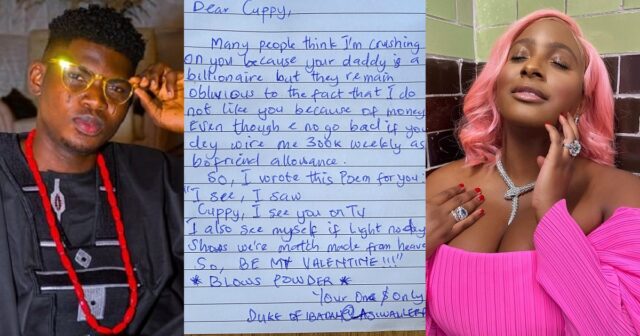 Dear Cuppy,
Many people think I'm crushing
on you because your daddy is a
billionaire but they remain
oblivious to the fact that I do
not like you because of money
Even though e no go bad if you
dey wire me 300k weekly as
bofriend allowance.
So, I wrote this Poem for you:
"I see, I saw
Cuppy, I see you on TV
I also see myself if light no dey
Shows we're match made from heave
So, BE MY VALENTINE!!!"
* BLOWS POWDER *
Your One & Only
DUKE OF IBADAN